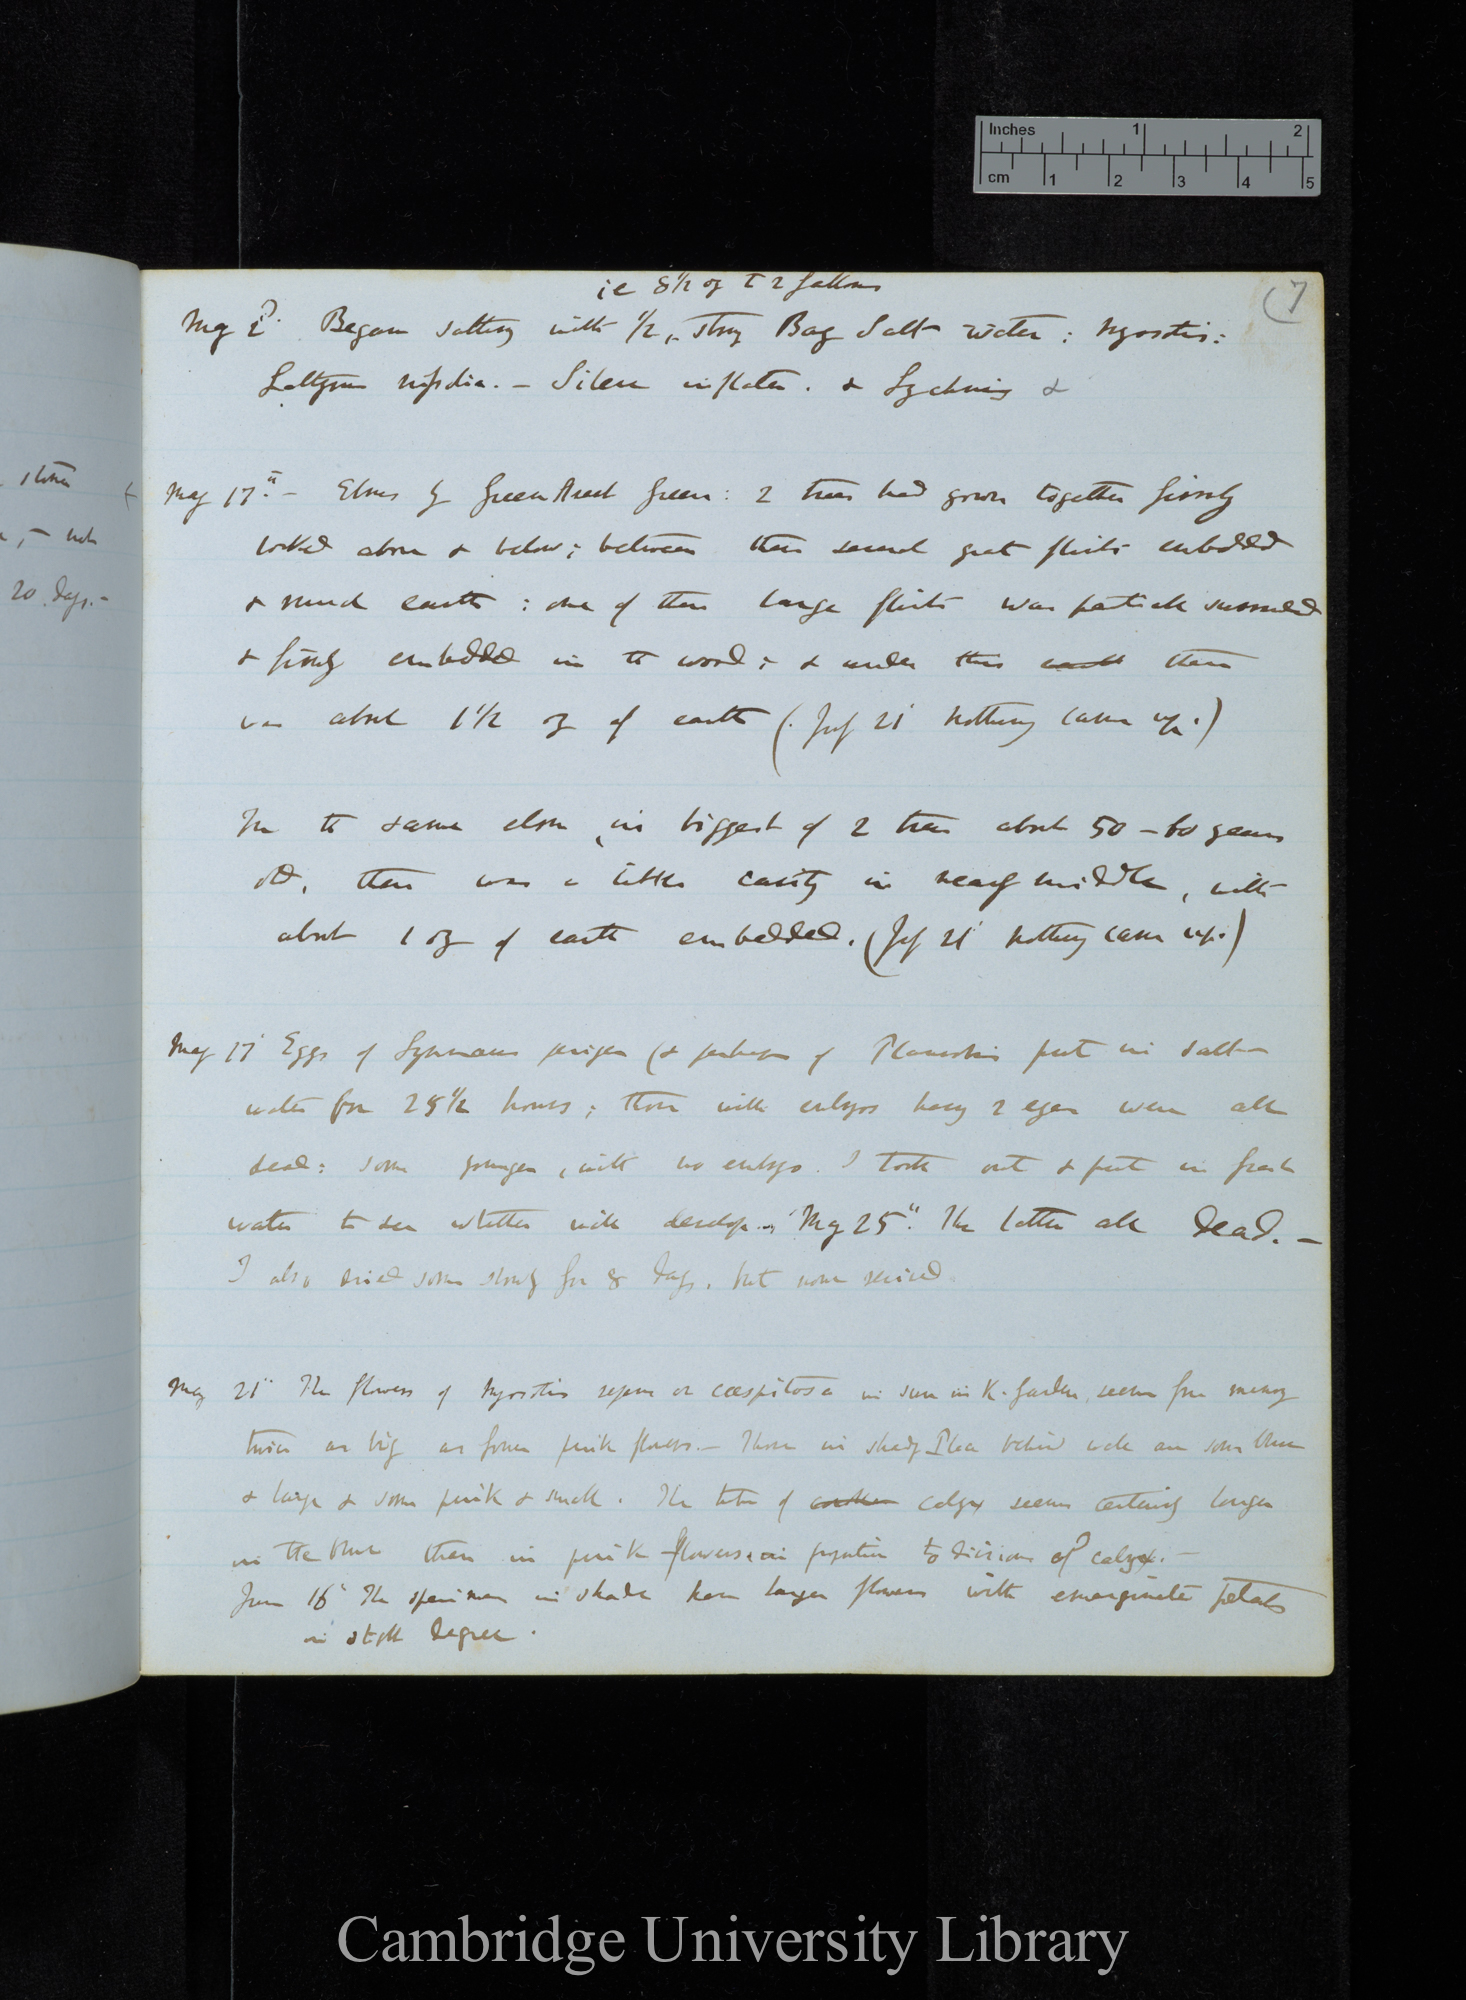 Inches 1 2
cm 1 2 3 4 5
(7
ie 8 1/2 oz to 2 Gallons
May 2d. Began salting with 1/2, strong Bay Salt water: Myosotis:
Silene inflata. & Lychnis &
stone
20 days. -
May 17th. - Elms by Green Street Green: 2 trees had grown together firmly
locked above & below; between them several great flints embedded
& much earth: one of these large flints was surrounded
& firmly embedded in the wood; & under this earth there
was about 1 1/2 oz of earth (July 21 Nothing came up.)
In the same elm, in biggest of 2 trees about 50-60 years
old, there was a little cavity in nearly middle, with
about 1 oz of earth embedded. (July 21 Nothing came up.)
May 17 Eggs of (& perhaps of Planorbis put in salt
water for 28 1/2 hours; those with embryos having 2 eyes were all
dead: some younger, with no embryo. I took out & put in fresh
water to see whether will develop. "May 25". The latter all dead. -
I also dried some slowly for 8 days, but none revived.
May 21" The flowers of Myosotis repens or cæspitosa in sun in K. Garden, seem from memory
twice as big as former pink flowers. - Those in shady Place behind wall are some blue
& large & some pink & small. The tube of calyx seems certainly longer
in the blue than in pink flowers, in proportion to divisions of calyx. -
June 16 The specimen in shade have larger flowers with emarginate petals
in slight degree.
Cambridge University Library